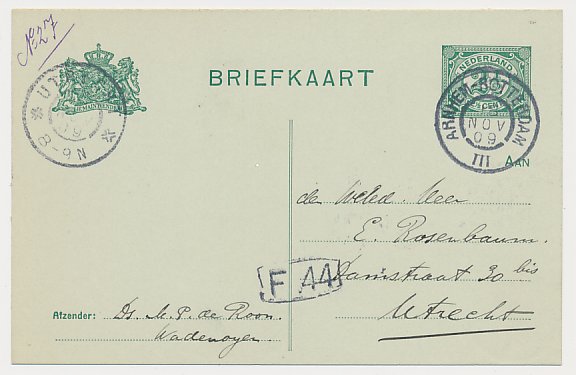 No 27
UT
8-9N
BRIEFKAART
NEDERLAND
CENT
ARNHEM-ROTTERDAM
NOV
09
III
AAN
den Weled. Heer
E. Rosenbaum.
Damstraat 30 bis
Utrecht
F 44
Afzender: Ds. M. P. de Roon.
Wadenoyen